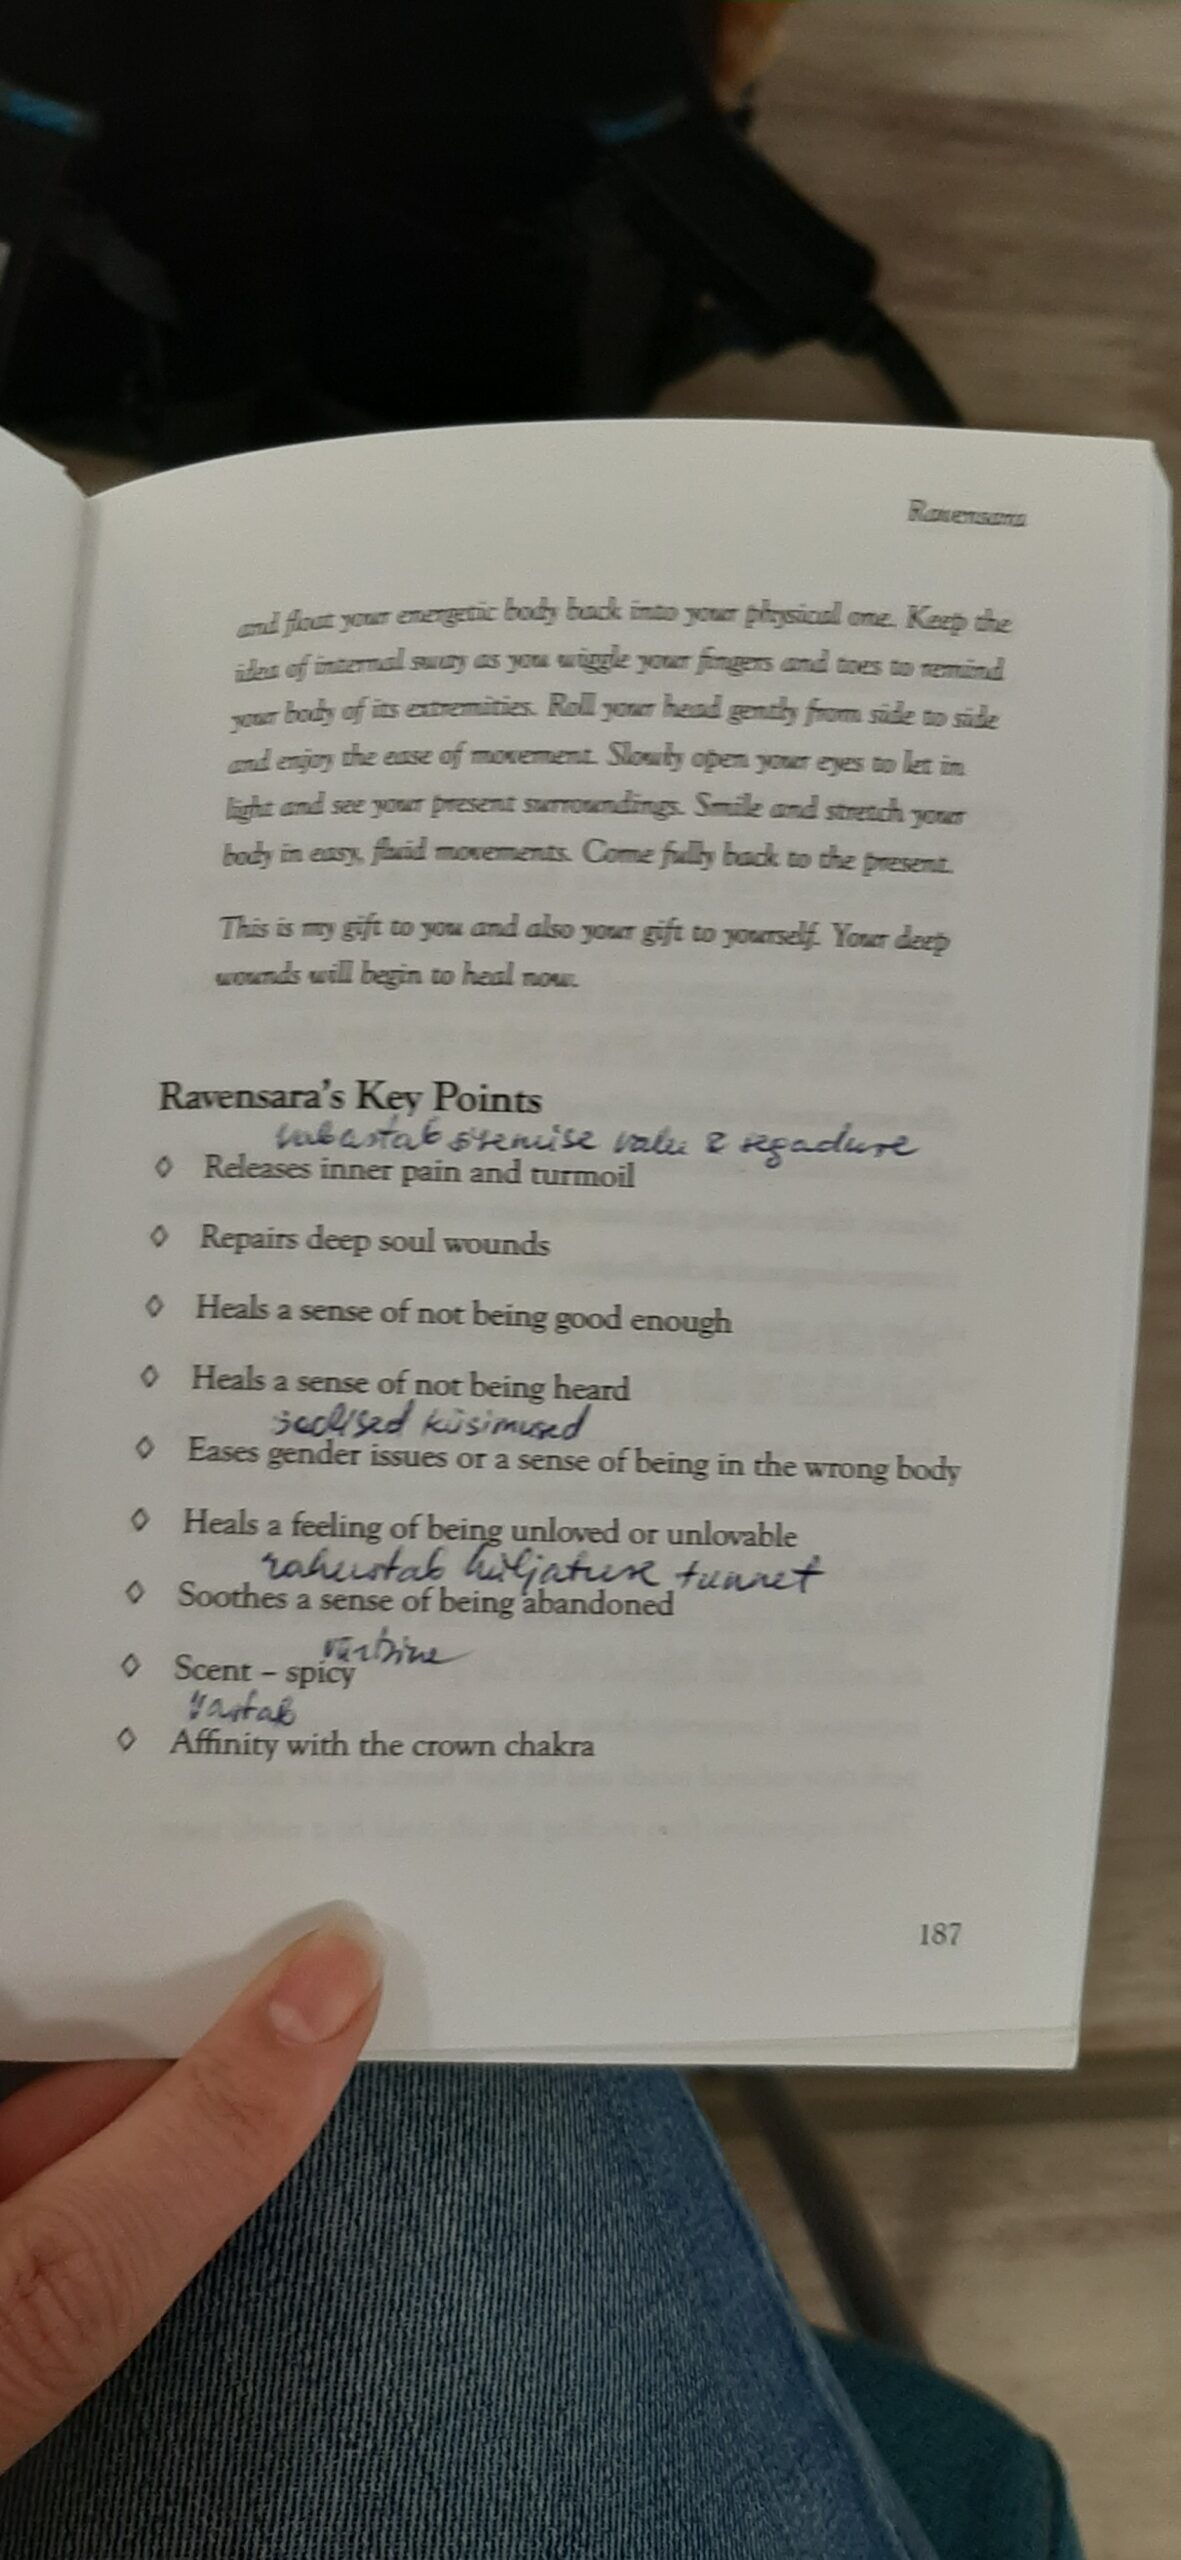 Ravensara
and float your energetic body back into your physical one. Keep the
idea of internal sway as you wiggle your fingers and toes to remind
your body of its extremities. Roll your head gently from side to side
and enjoy the ease of movement. Slowly open your eyes to let in
light and see your present surroundings. Smile and stretch your
body in easy, fluid movements. Come fully back to the present.
This is my gift to you and also your gift to yourself. Your deep
wounds will begin to heal now.
Ravensara's Key Points
vabastab sisemise valu & segaduse
◊ Releases inner pain and turmoil
◊ Repairs deep soul wounds
◊ Heals a sense of not being good enough
◊ Heals a sense of not being heard
küsimused
◊ Eases gender issues or a sense of being in the wrong body
◊ Heals a feeling of being unloved or unlovable
rahustab hüljatuse tunnet
◊ Soothes a sense of being abandoned
vürtsine
◊ Scent – spicy
vastab
◊ Affinity with the crown chakra
187